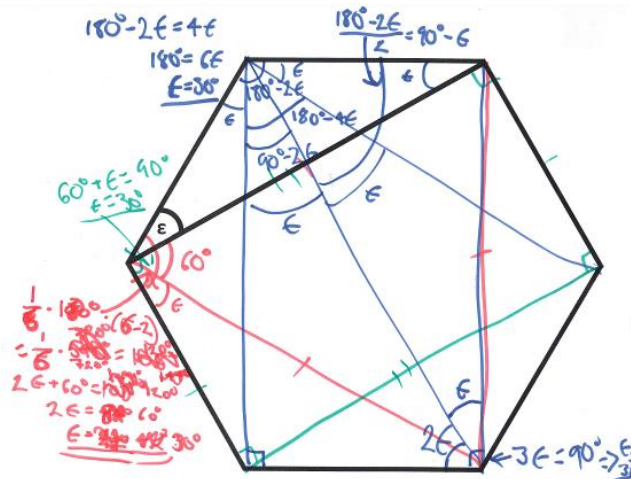 180°-2ε=4ε
180°=6ε
ε=30°
180°-2ε
2
=90°-ε
ε
ε
ε
180°-2ε
180°-4ε
90°-2ε
ε
ε
60°+ε=90°
ε=30°
ε
60°
ε
1/6 ·
(6-2)
= 1/6 ·
2ε+60°=
2ε= 60°
ε= 30°
ε
2ε
3ε=90°=>